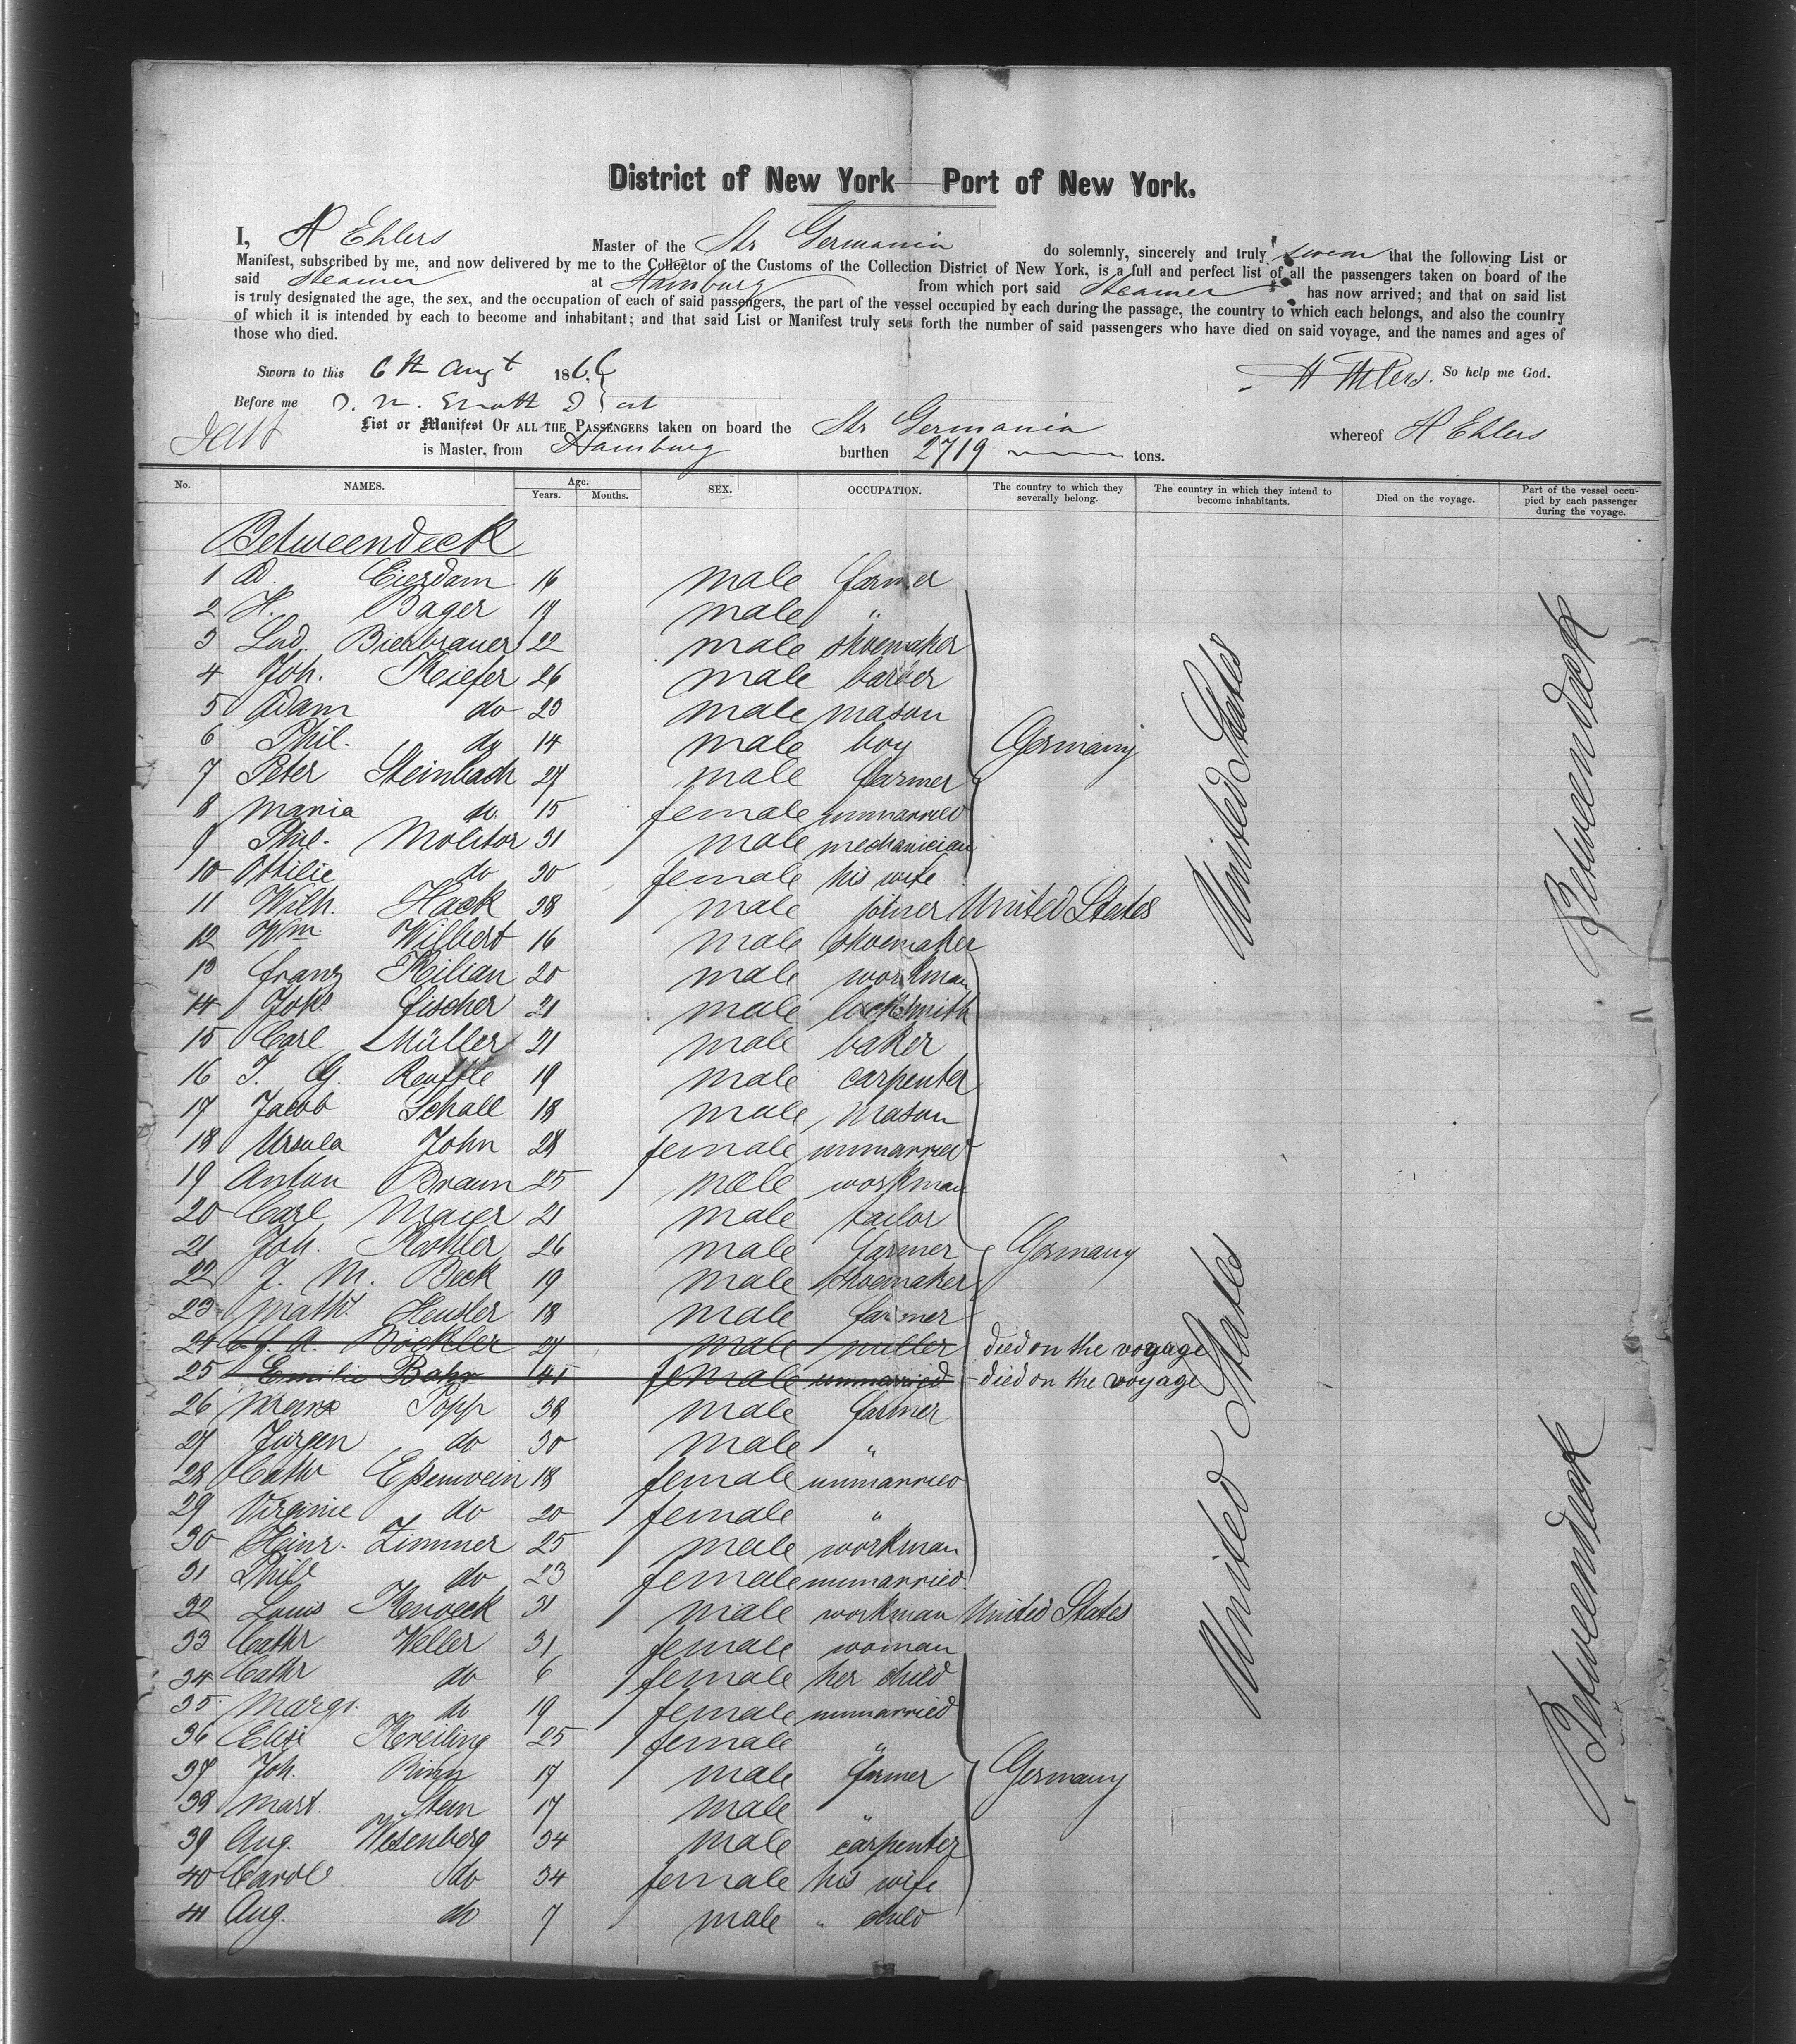 District of New York—Port of New York.
I, H Ehlers Master of the Str Germania do solemnly, sincerely and truly swear that the following List or
Manifest, subscribed by me, and now delivered by me to the Collector of the Customs of the Collection District of New York, is a full and perfect list of all the passengers taken on board of the
said Steamer at Hamburg from which port said Steamer has now arrived; and that on said list
is truly designated the age, the sex, and the occupation of each of said passengers, the part of the vessel occupied by each during the passage, the country to which each belongs, and also the country
of which it is intended by each to become and inhabitant; and that said List or Manifest truly sets forth the number of said passengers who have died on said voyage, and the names and ages of
those who died.
Sworn to this 6th Augt 1866 H Ehlers. So help me God.
Before me
List or Manifest OF ALL THE PASSENGERS taken on board the Str Germania whereof H Ehlers
is Master, from Hamburg burthen 2719 tons.
No. NAMES. Age. Years. Months. SEX. OCCUPATION. The country to which they severally belong. The country in which they intend to become inhabitants. Died on the voyage. Part of the vessel occupied by each passenger during the voyage.
Betweendeck
1 Ad. Cierdam 16 male farmer
2 H. Bager 19 male "
3 Lud. Bierbrauer 22 male shoemaker
4 Joh. Kiefer 26 male barber
5 Adam do 23 male mason
6 Phil. do 14 male boy Germany United States Betweendeck
7 Peter Steinbach 27 male farmer
8 Maria do 15 female unmarried
9 Phil. Molitor 31 male mechanician
10 Ottilie do 30 female his wife
11 Wilh. Hack 38 male joiner United States
12 Wm. Wilbert 16 male shoemaker
13 Franz Kilian 20 male workman
14 Johs Fischer 21 male locksmith
15 Carl Müller 21 male baker
16 J. G. 19 male carpenter
17 Jacob Schall 18 male mason
18 Ursula John 28 female unmarried
19 Anton Braun 25 male workman
20 Carl Maier 21 male tailor
21 Joh. Koehler 26 male farmer Germany
22 J. M. Beck 19 male shoemaker
23 Math. Heusler 18 male farmer
24 A. Böckler 27 male miller died on the voyage
25 Emilie Bahr 41 female unmarried died on the voyage
26 Marx Popp 38 male farmer
27 Jürgen do 30 male "
28 Cath Eßenwein 18 female unmarried United States Betweendeck
29 Virginie do 20 female "
30 Heinr. Zimmer 25 male workman
31 Phil do 23 female unmarried
32 Louis Kenoeck 31 male workman United States
33 Cathr Weller 31 female woman
34 Cathr do 6 female her child
35 Margr. do 19 female unmarried
36 Elise Kreiling 25 female "
37 Joh. Rinn 17 male farmer Germany
38 Mart. Stein 17 male "
39 Aug. Wesenberg 34 male carpenter
40 Carol do 34 female his wife
41 Aug. do 7 male " child